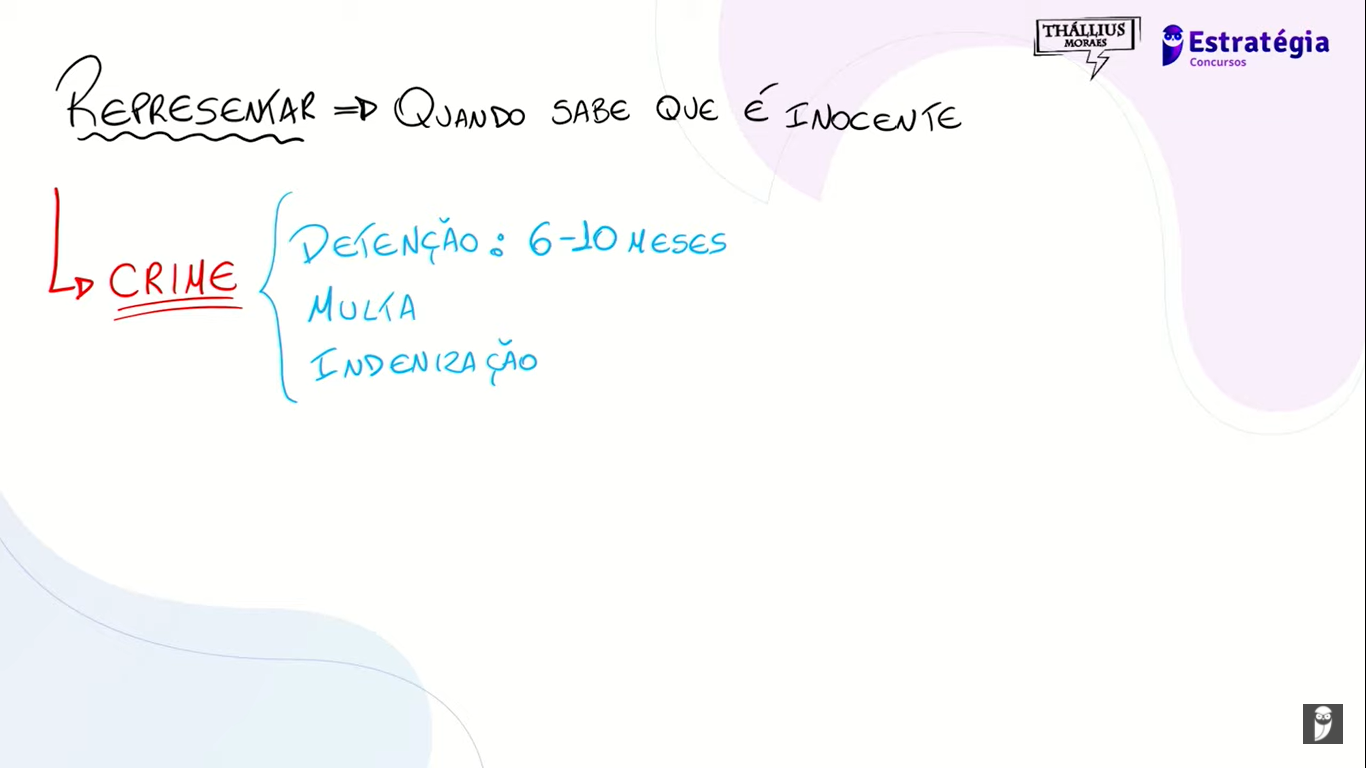 THÁLLIUS
MORAES
Estratégia
Concursos
REPRESENTAR => QUANDO SABE QUE É INOCENTE
CRIME
DETENÇÃO: 6-10 MESES
MULTA
INDENIZAÇÃO